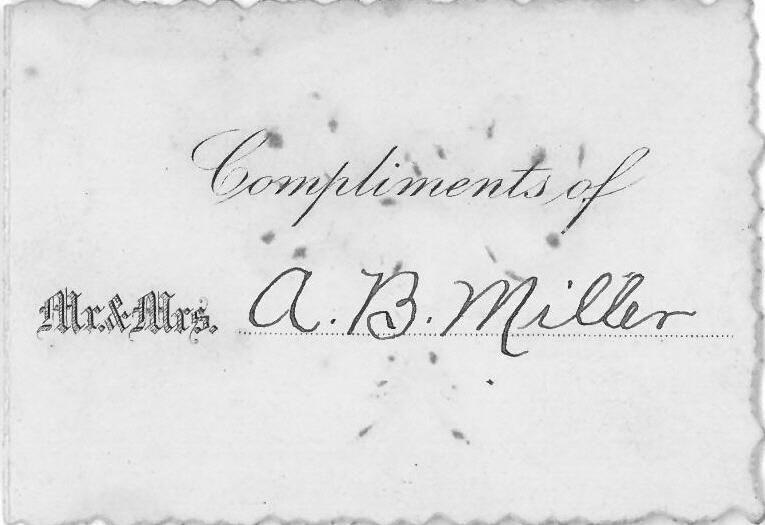 Compliments of
Mr. & Mrs. A. B. Miller